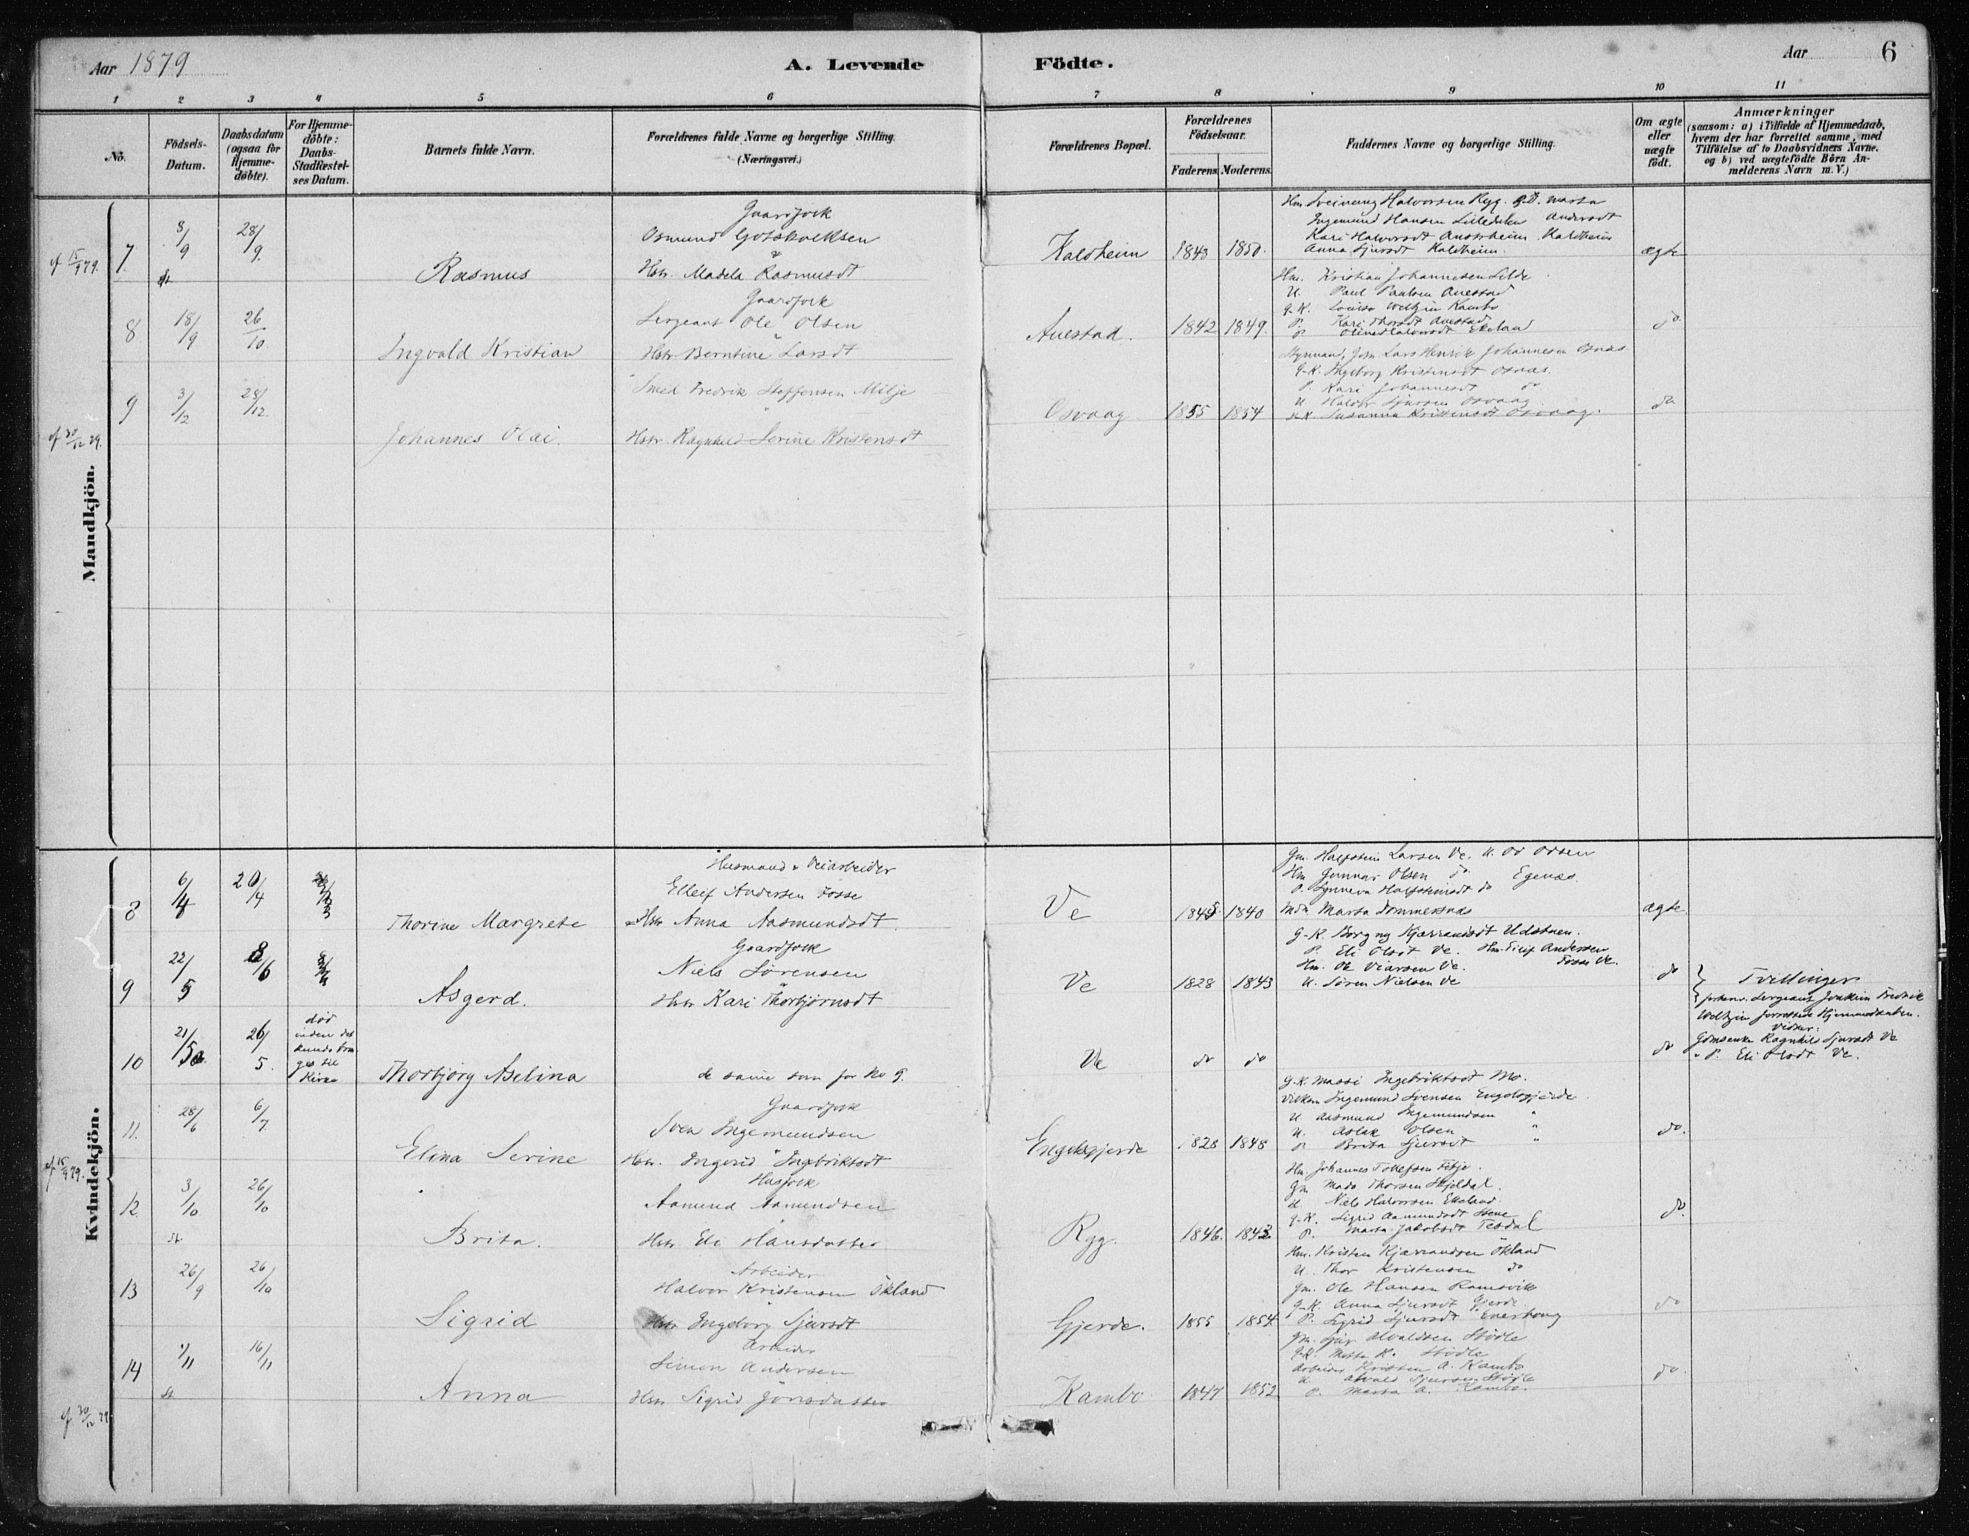 Aar 1879
A. Levende Födte.
Aar 6
1 2 3 4 5 6 7 8 9 10 11
No.
Födsels-Datum.
Daabsdatum (ogsaa for Hjemme-döbte).
For Hjemme-döbte: Daabs-Stadfæstel-ses Datum.
Barnets fulde Navn.
Forældrenes fulde Navne og borgerlige Stilling. (Næringsvei.)
Forældrenes Bopæl.
Forældrenes Födselsaar.
Faderens Moderens.
Faddernes Navne og borgerlige Stilling.
Om ægte eller uægte födt.
Anmærkninger
(saasom: a) i Tilfælde af Hjemmedaab,
hvem der har forrettet samme, med
Tilföielse af to Daabsvidners Navne.
og b) ved uægtefödte Börn An-
melderens Navn m. V.)
Mandkjön.
7 8/9 28/9 Rasmus
Gaardfolk
Osmund Gotskalksen
Hstr. Madela Rasmusdt
Kaldheim 1843 1850.
Hm Sveinung Halvorsen Ryg.
Ingemund Hansen Lilledalen
Anna Sjursdt Kaldheim.
ægte
8 18/9 26/10 Ingvald Kristian
Gaardfolk
Sergeant Ole Olsen
Hstr. Berntine Larsdt
Auestad. 1842 1849.
Hm. Kristian Johannesen Lilde
U. Paul Paulsen Auestad
G-K. Lovisa Weltzin Kambo
P. Kari Thorsdt Auestad
do
9 3/12 28/12 Johannes Olai.
Smed Fredrik Steffensen Milje
Hstr. Ragnhild Serine Kristensdt
Osvaag 1855 1854
Lars Henrik Johannesen Osnæs
G-K. Ingeborg Kristensdt Osnæs.
P. Kari Johannesdt do
U. Haldor Sjursen Osvaag.
G-K Susanna Kristensdt Osvaag.
do
Kvindekjön.
8 6/4 20/4 Thorine Margrete
Husmand & Veiarbeider
Elleif Andersen Fosse
Hstr Anna Aasmundsdt.
Ve 1845 1840
Gm. Halfstein Larsen Ve.
Hm Gunnar Olsen do Egenæs.
P. Synneva Halfsteinsdt do
ægte.
9 22/5 8/6 Asgerd.
Gaardfolk
Niels Sørensen
Hstr Kari Thorbjørnsdt
Ve 1828 1843
P. Eli Olsdt Ve. Hm. Eilif Andersen Fosse Ve.
U. Søren Nielsen Ve
do
Tvillinger
10 21/5 26/5.
død inden det kunde bringes til Kirke
Thorbjørg Aselina
de samme som for No 9.
Ve do do do
Sergeant Joakim Fredrik
Weltzin forrettede Hjemmedaaben.
Vidner:
Ragnhild Sjursdt Ve
P. Eli Olsdt Ve.
11. 28/6 6/7 Elina Serine
Gaardfolk
Sven Ingemundsen
Hstr. Ingerid Ingebriktsdt
Engelsgjerde 1828 1848
G-K. Massi Ingebriktsdt Mo.
Ingemund Svensen Engelsgjerde.
U Aasmund Ingemundsen "
U. Aslak Olsen "
P Brita Sjursdt "
do.
12 3/10 26/10 Brita.
Husfolk
Aamund Aamundsen
Hstr Eli Hansdatter
Ryg. 1846. 1843
Hm. Johannes Tollefsen Fitje.
Gm. Mads Thorsen Skjeldal.
U Niels Halvorsen Ekeland.
G-K. Sigrid Aamundsdt Stene
P. Marta Jakobsdt Tesdal
do.
13 26/9 26/10 Sigrid
Arbeider
Halvor Kristensen Økland
Hstr Ingeborg Sjursdt
Gjerde. 1855 1854
Hm. Kristen Kjærrandsen Økland
U. Thor Kristensen do
Gm. Ole Hansen Ramsvik
G-K. Anna Sjursdt Gjerde.
P. Sigrid Sjursdt
do
14 1/11 16/11 Anna
Arbeider
Simon Andersen
Hstr Sigrid Jonsdatter
Kambo 1847 1852
Gm. Sjur Alvaldsen Stødle
G-K. Mette K. Stødle
Arbeider Kristen A. Kambo
U Alvald Sjursen Stødle
P. Marta A. Kambo.
do